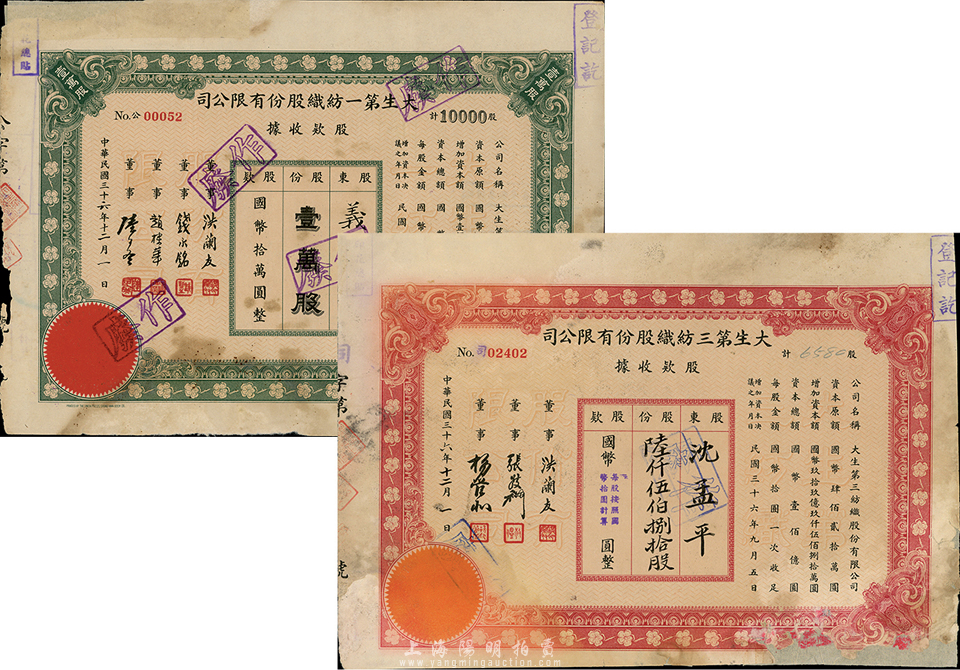 登記訖
壹萬股
壹萬股
大生第一紡織股份有限公司
No.公 00052
計10000股
股款收據
公司名稱 大生第
資本原額 國
增加資本額 國幣壹
資本總額 國幣
每股金額 國幣
增加資本決議之年月日 民國
股東 義
股份 壹萬股
股款 國幣拾萬圓整
董事 洪蘭友
董事 錢永銘
董事
董事
中華民國三十六年十二月一日
作廢
作廢
作廢
廢
登記訖
大生第三紡織股份有限公司
No.司 02402
計 6580 股
股款收據
公司名稱 大生第三紡織股份有限公司
資本原額 國幣肆佰貳拾萬圓
增加資本額 國幣玖拾玖億玖仟伍佰捌拾萬圓
資本總額 國幣壹佰億圓
每股金額 國幣拾圓一次收足
增加資本決議之年月日 民國三十六年九月五日
股東 沈孟平
股份 陸仟伍伯捌拾股
股款 國幣 圓整
每股按照國幣拾圓計算
董事 洪蘭友
董事 張敬禮
董事 楊管北
中華民國三十六年十二月一日
字第
號
上海陽明拍賣
www.yangmingauction.com